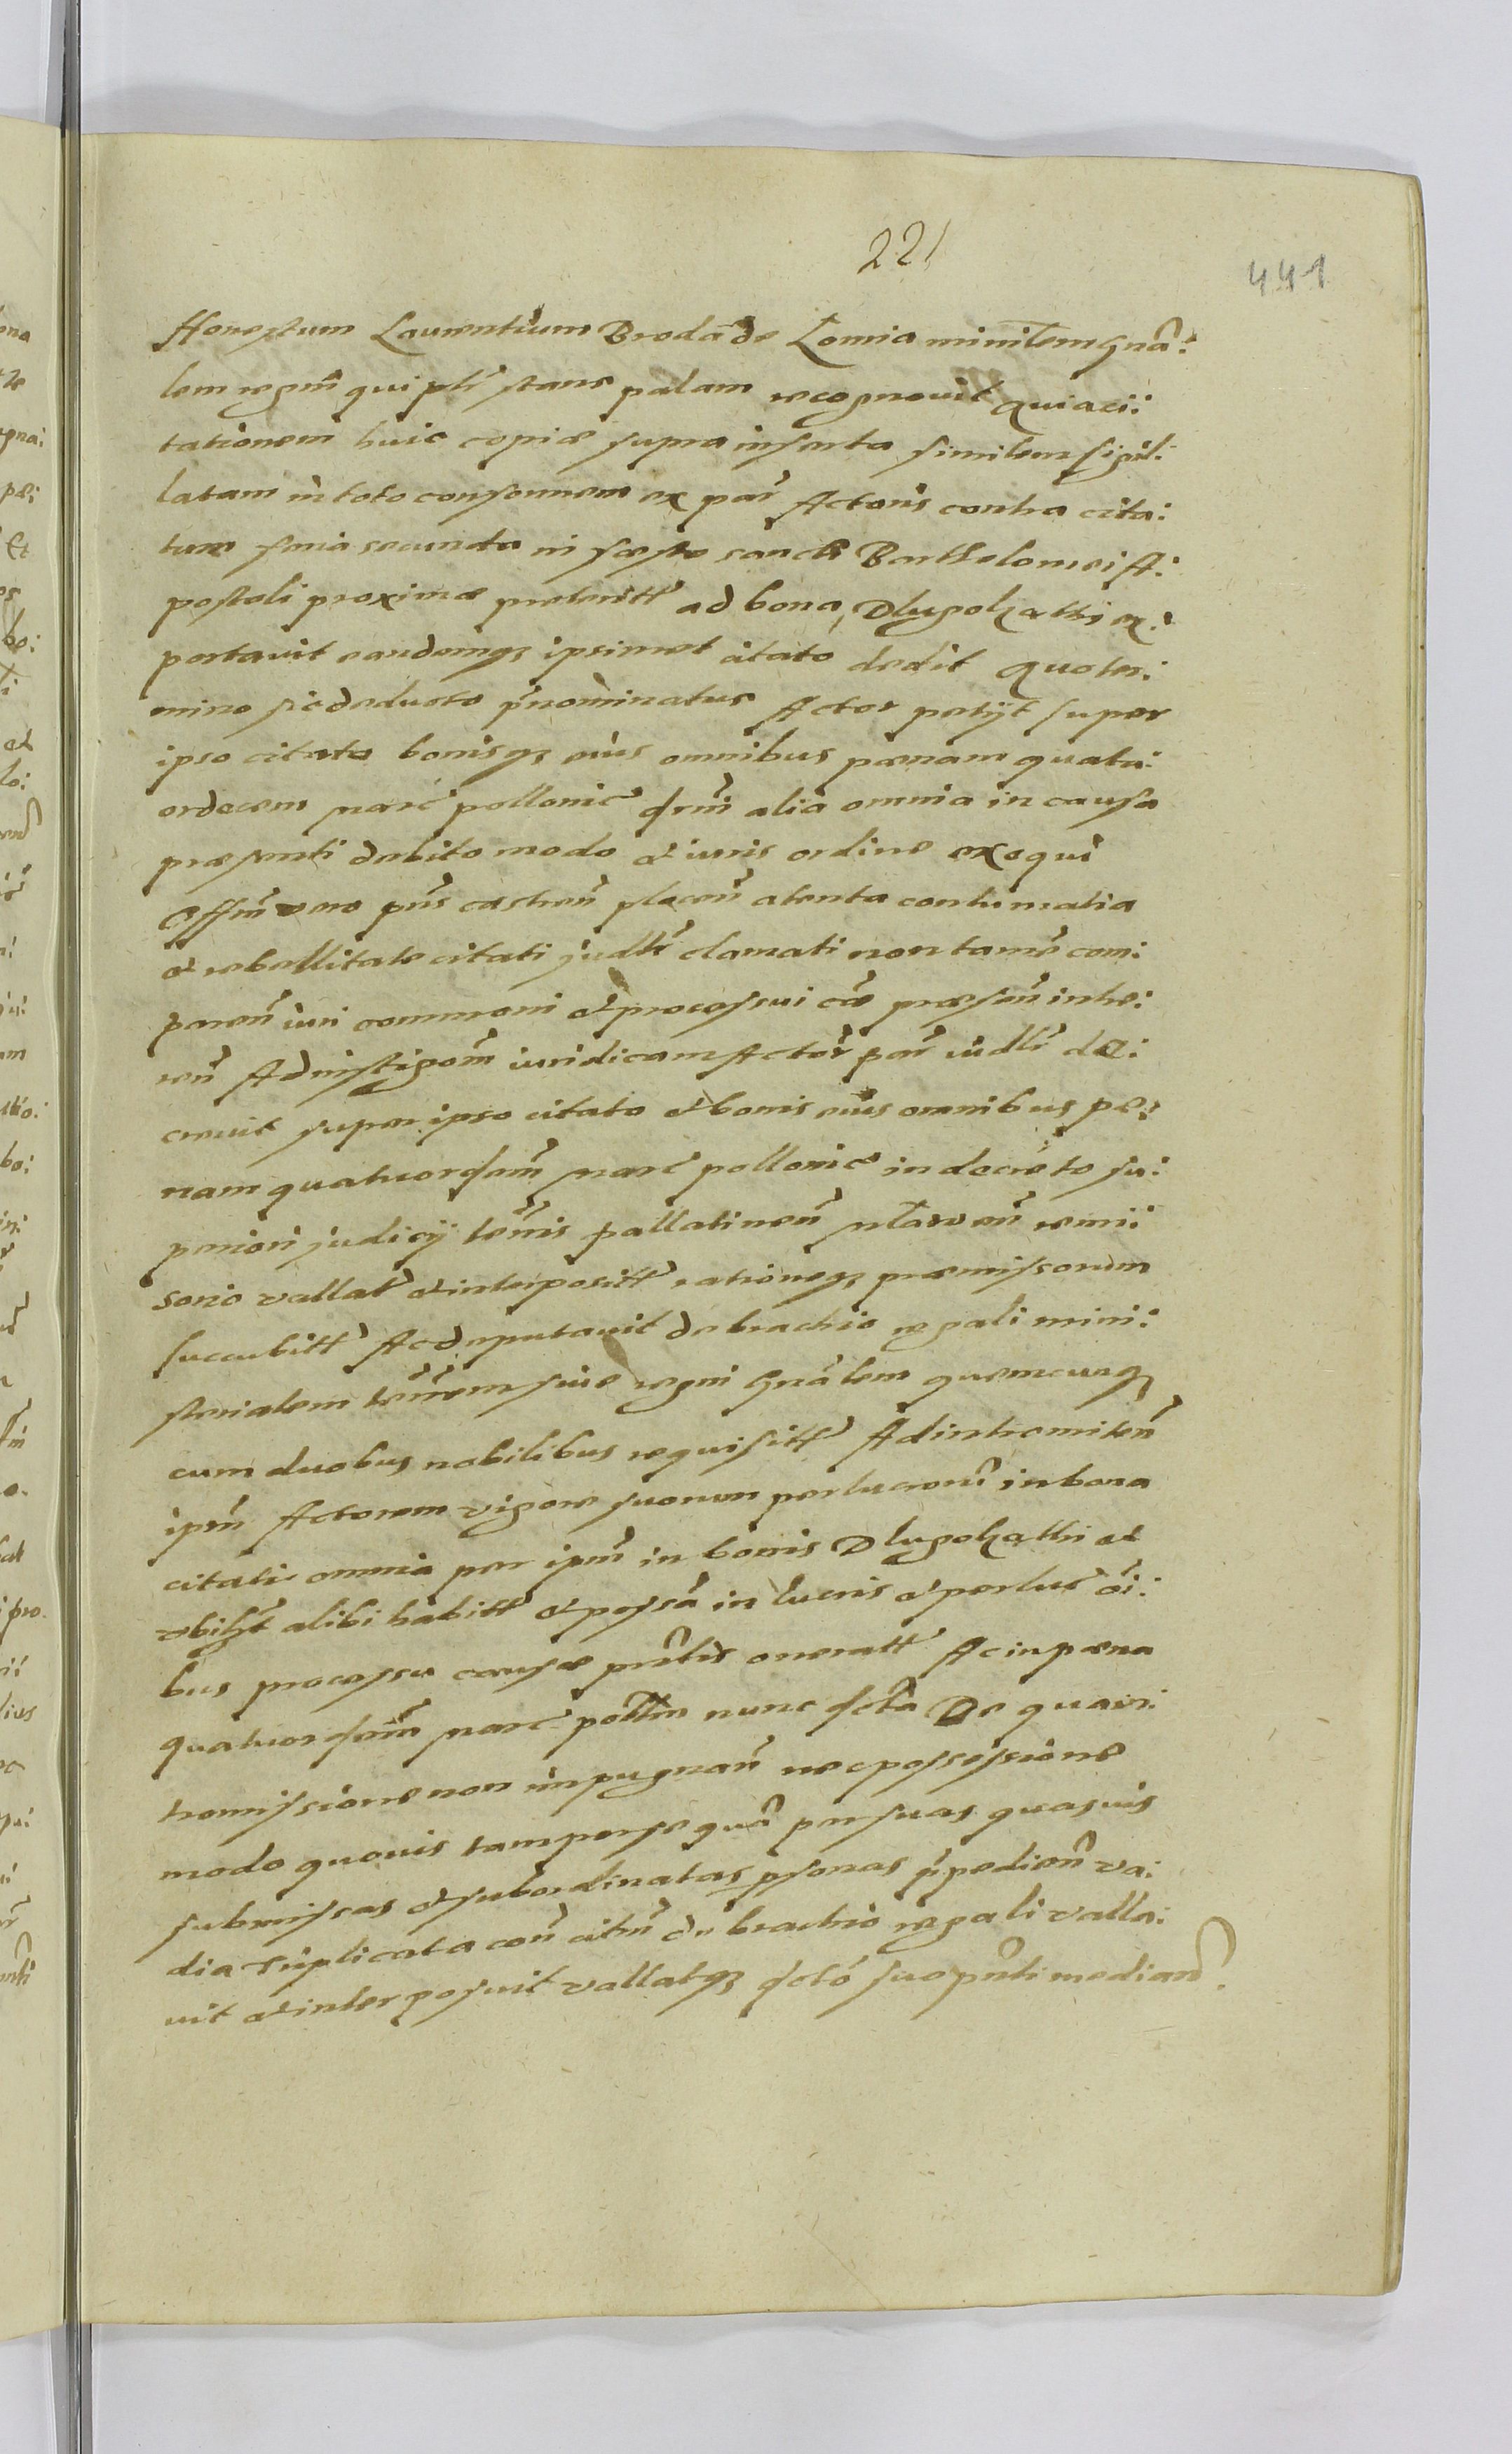 221
441
Honestum Laurentium Broda de Lomia minilem gnâ:
lem regni qui plr stans palam recognovit Quia ci:
tationem huic copiæ supra inserta similem sigil:
latam in toto consonnem ex par Actoris contra cita:
tum feria secunda in fæsto sancti Bartholomei A:
postoli proximæ preteritt ad bona Dlugoląthi ex:
portavit eandemq ipsimet citato dedit Quo ter:
mino sic deducto prnominatus Actor petijt super
ipso citato bonisq eius omnibus pænam quatu:
ordecem marc pollonic drni alia omnia in causa
præsenti debito modo et iuris ordine exequi
Offm vero pns castren plocen atenta contumatia
et rebellitate citati judllr clamati non tamē com:
paren iuri communi et processui cæ præsen inhe:
ren Ad instigom iuridicam Actor par iudllr de:
crevit super ipso citato et bonis eius omnibus pæ:
nam quatuordem marc pollonicæ in decreto su:
periori judicij terris pallatinen remi:
sorio vallat et interpositt rationeq præmissorum
succubitt Ac deputavit de brachio regali mini:
sterialem terrem sive regni Gnâlem quemcunq
cum duobus nobilibus requisitt Ad intromiten
ipm Actorem vigore suorum perlucroru in bona
citati omnia per ipm in bonis Dlugoląthi et
ubilt alibi habitt et possa in lucris et perlucr oi:
bus processu causæ pntis oneratt Ac in pæna
quatuordem marc polln nunc dcta De qua in:
tromissione non impugnan nec possessione
modo quovis tam per se quâ per suas quasvis
submissas et subordinatas psonas ipedien va:
dia triplicata con citm de brachio regali valla:
vit et interposuit vallatq dcto suo pnti median